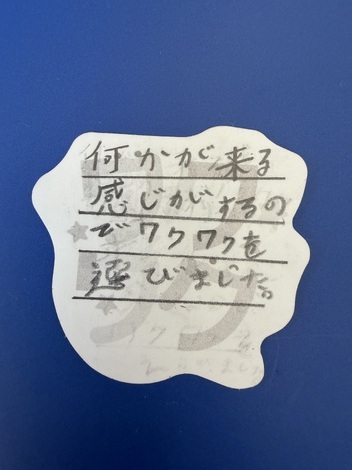 何かが来る
感じがするの
でワクワクを
選びました。